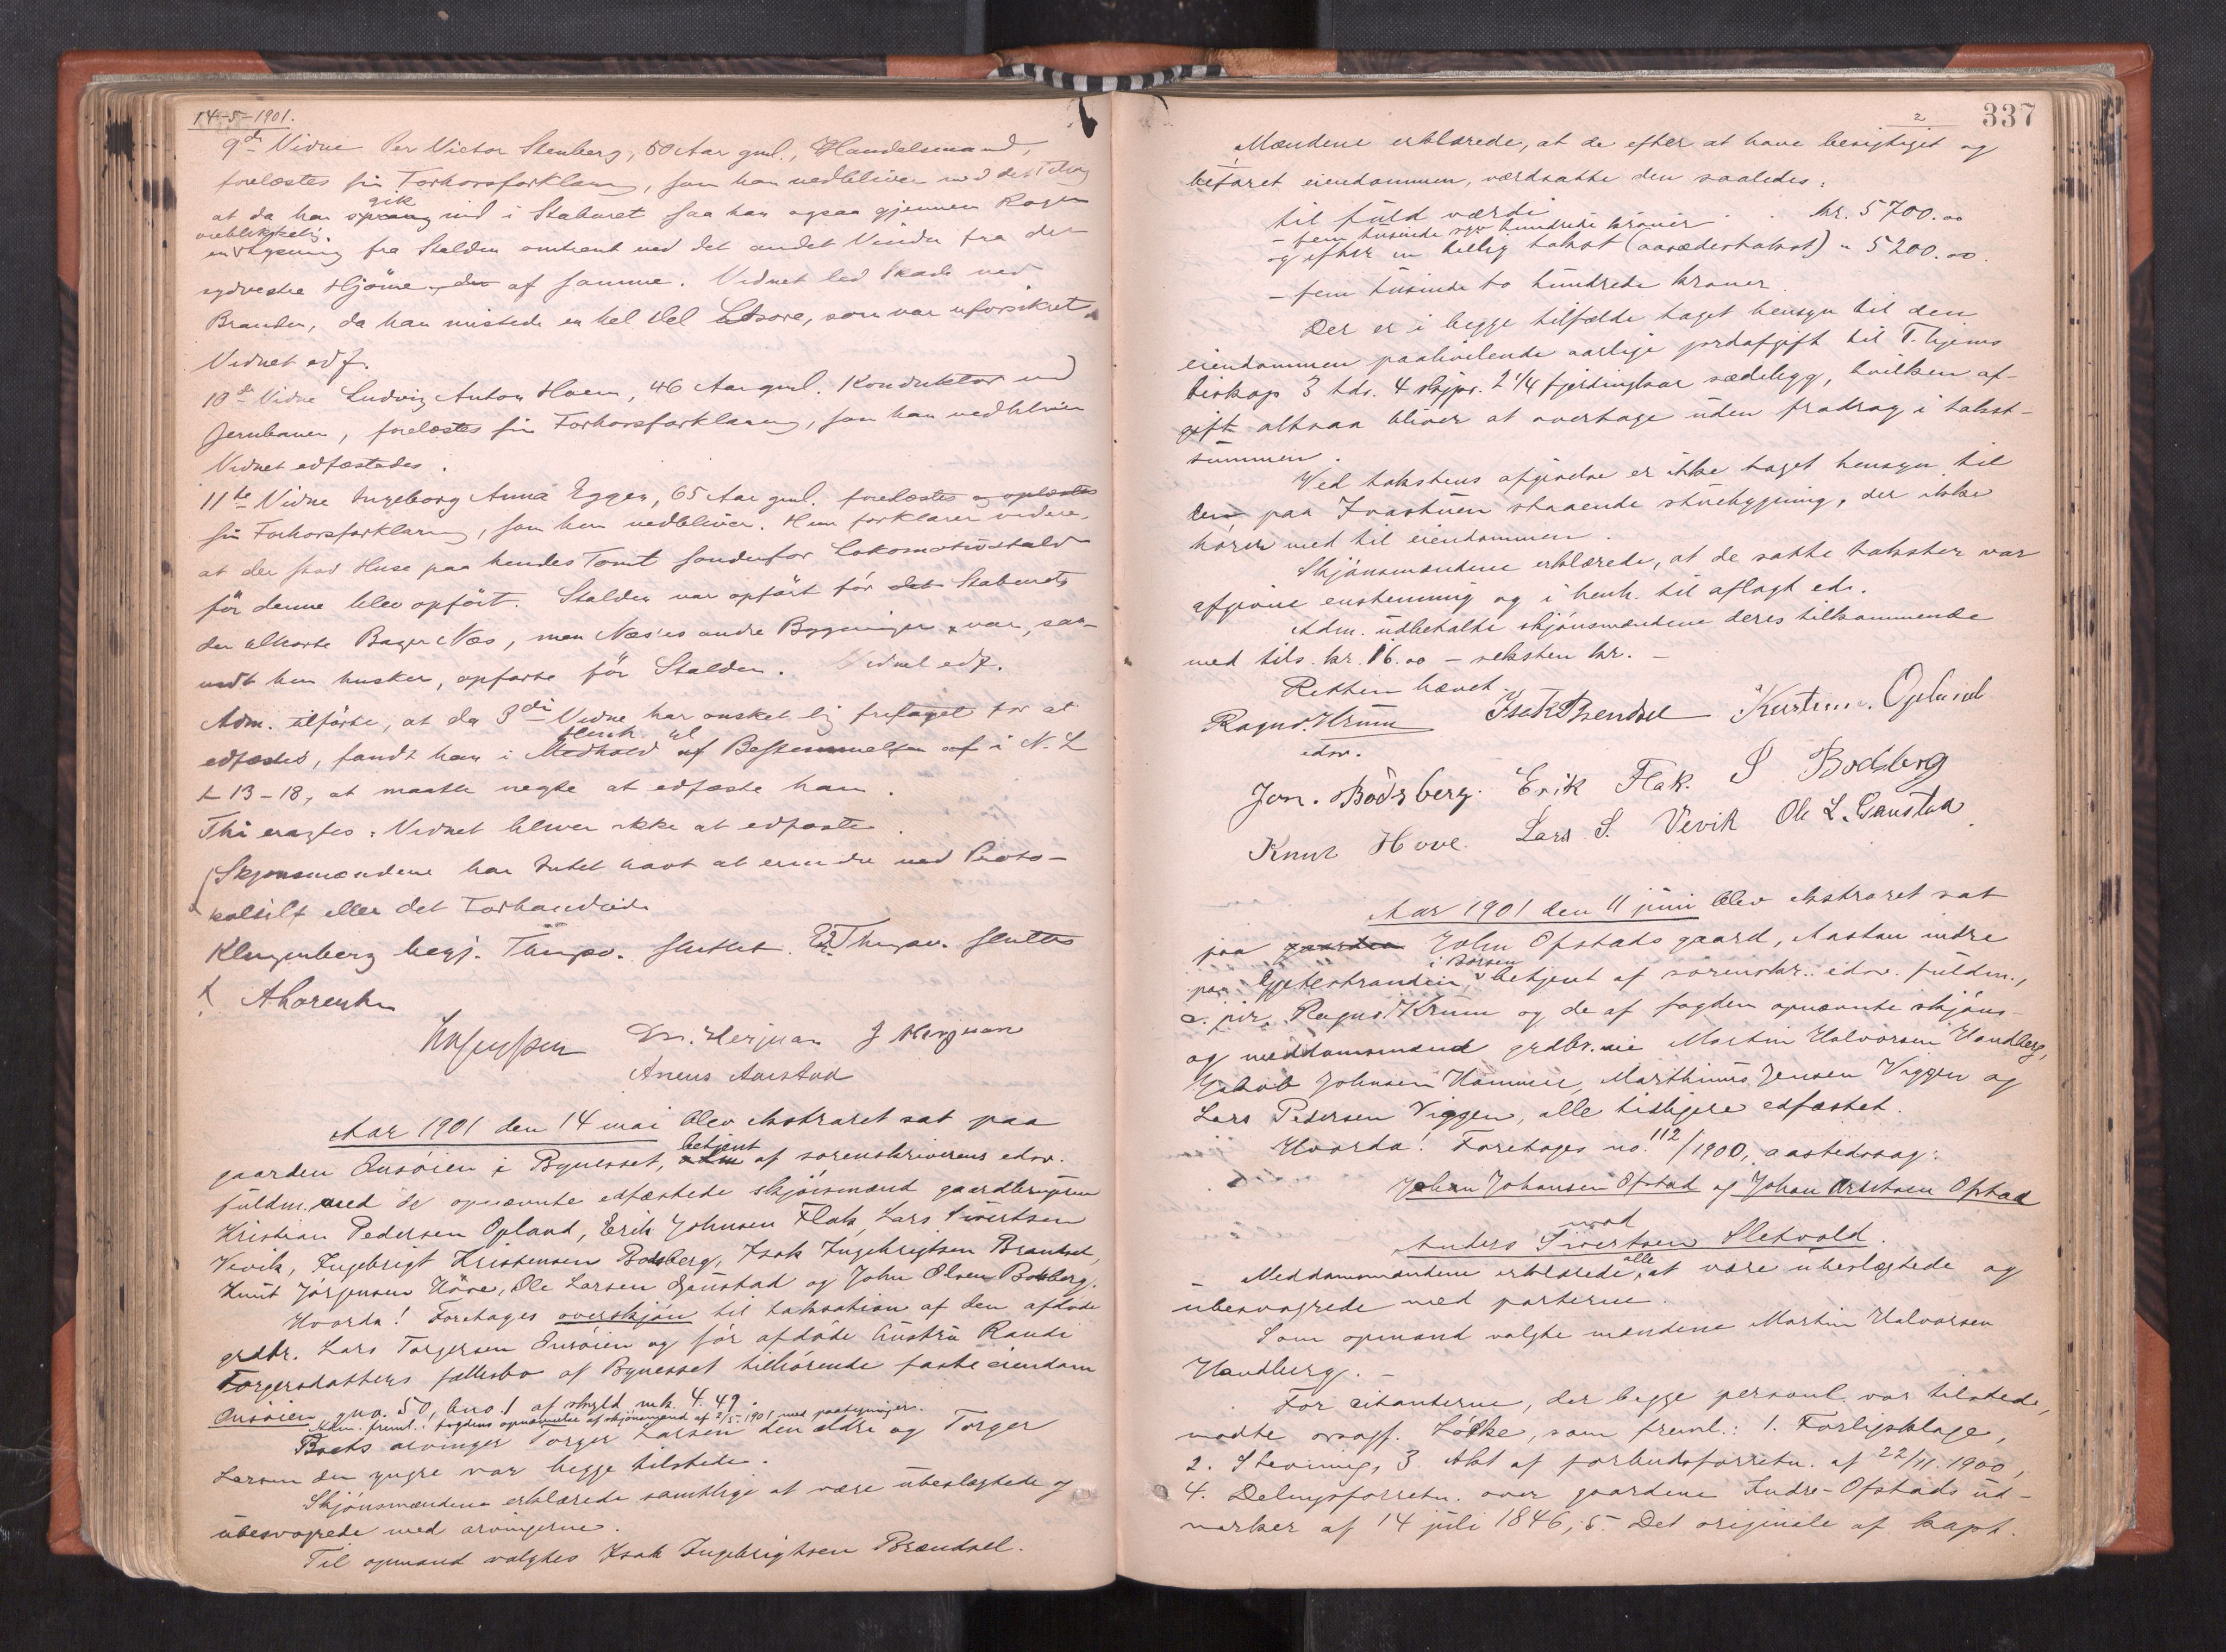 14-5-1901.
9de Vidne Per Victor Stenberg, 50 Aar gml., Handelsmand,
forelæstes sin Forhørsforklaring, som han vedbliver med det Tillæg
at da han gik ind i Staburet saa han ogsaa gjennem Rögen
en öieblikkelig Lysning fra Stalden omtrent ved det andet Vindu fra det
sydvestre Hjörne af samme. Vidnet led Skade ved
Branden, da han mistede en hel Del Løsøre, som var uforsikret.
Vidnet edf.
10de Vidne Ludvig Anton Hoem, 46 Aar gml. Konduktør ved
Jernbanen, forelæstes sin Forhørsforklaring, som han vedbliver
Vidnet edfæstedes.
11te Vidne Ingeborg Anna Eggen, 65 Aar gml. forelæstes og oplæstes
sin Forhørsforklaring, som hun vedbliver. Hun forklarer videre,
at der stod Huse paa hendes Tomt söndenfor Lokomotivstald
för denne blev opfört. Stalden var opfört för det Staburets
der tilhörte Bager Næs, men Næs'es andre Bygninger var, saa-
vidt hun husker, opförte för Stalden. Vidnet edf.
Adm. tilförte, at da 3die Vidne har önsket sig fritaget for at
edfæstes, fandt han i Henh. til Bestemmelsen i N. L
1-13-18, at maatte negte at edfæste ham.
Thi eragtes: Vidnet bliver ikke at edfæste.
Skjönsmændene har Intet havt at erindre ved Proto-
koltilf eller det Forhandlede
Klingenberg begj. Thingsv. sluttet. Er. Thingsv. sluttes
A Lorentzen
Dr. Herjuan J Herjuan
Anens Aarstad
Aar 1901 den 14 mai blev Ekstraret sat paa
gaarden Önsöien i Bynesset, betjent af sorenskriverens edsv.
fuldm. med de opnævnte edfæstede skjönsmænd gaardbrugerne
Kristian Pedersen Opland, Erik Johnsen Flak, Lars Sivertsen
Vevik, Ingebrigt Kristensen Bodsberg, Isak Ingebrigtsen Brændsel,
Knut Jörgensen Höve, Ole Larsen Ganstad og John Olsen Bodsberg.
Hvorda! Foretages overskjön til taksation af den afdöde
grdbr. Lars Torgersen Önsöien og för afdöde hustru Randi
Torgersdatters fællesbo af Bynesset tilhörende faste eiendom
Önsöien gno. 50, bno. 1 af skyld mk. 4.49.
Adm. freml.: fogdens opnævnelse af skjönsmænd af 2/5-1901 med paategninger.
Boets arvinger Torger Larsen den ældre og Torger
Larsen den yngre var begge tilstede.
Skjönsmændene erklærede samtlige at være ubeslægtede og
ubesvogrede med arvingerne.
Til opmand valgtes Isak Ingebrigtsen Brændsel.
2
337
Mændene erklærede, at de efter at have besigtiget og
befaret eiendommen, værdsatte den saaledes:
til fuld værdi . . kr. 5700.00
- fem tusinde syv hundrede kroner
og efter en billig takst (aasædestakst) " 5200.00.
- fem tusinde to hundrede kroner.
Der er i begge tilfælde taget hensyn til den
eiendommen paahvilende aarlige jordafgift til T.hjems
biskop 3 tdr. 4 skjpr. 2 1/4 fjerdingkar sædebygg, hvilken af-
gift altsaa bliver at overtage uden fradrag i takst-
summen.
Ved takstens afgivelse er ikke taget hensyn til
den paa Ivastuen staaende stuebygning, der ikke
hörer med til eiendommen.
Skjönsmændene erklærede, at de satte takster var
afgivne enstemmig og i henh. til aflagt ed.
Adm. udbetalte skjönsmændene deres tilkommende
med tils. kr. 16.00 - seksten kr. -
Retten hævet.
Ragnv. Krum Isak Brendsel Kristian Opland
edsv.
Jon. Bödsberg. Erik Flak. I Bodsberg
Knut Hove Lars S. Vevik Ole L. Ganstad
Aar 1901 den 11 juni blev Ekstraret sat
paa gaarden John Ofstads gaard, Aastan indre
paa Gjetestranden i Börsen betjent af sorenskr. edsv. fuldm.,
c. jur. Ragnv Krum og de af fogden opnævnte skjöns-
og meddomsmænd grdbr.ne Martin Halvorsen Handberg,
Jakob Johnsen Hammer, Marthinus Jensen Viggen og
Lars Pedersen Viggen, alle tidligere edfæstet.
Hvorda! Foretages no. 112/1900, aastedssag:
Johan Johansen Ofstad og Johan Arntsen Ofstad
mod
Anders Sivertsen Sletvold.
Meddomsmændene erklærede, alle at være ubeslægtede og
ubesvogrede med parterne.
Som opmand valgte mændene Martin Halvorsen
Handberg. -
For citanterne, der begge personl. var tilstede,
mödte orsagf. Löcke, som freml.: 1. Forligsklage,
2. Stevning, 3. Akt af forbudsforretn. af 22/11.1900,
4. Delingsforretn. over gaardene Indre-Ofstads ud-
marker af 14 juli 1846, 5. Det originale af kapt.